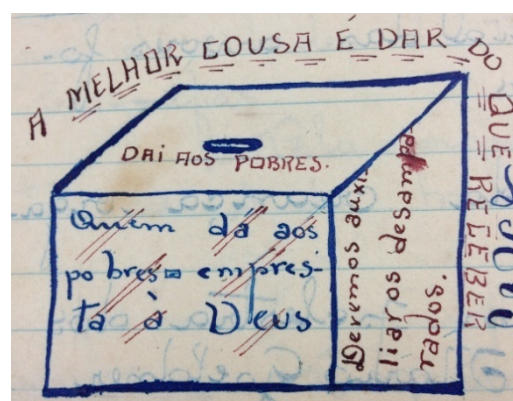 A MELHOR COUSA É DAR DO QUE RECEBER
DAI AOS POBRES.
Quem dá aos
pobres= empres-
ta à Deus
Devemos auxi-
liar os desampa-
rados.